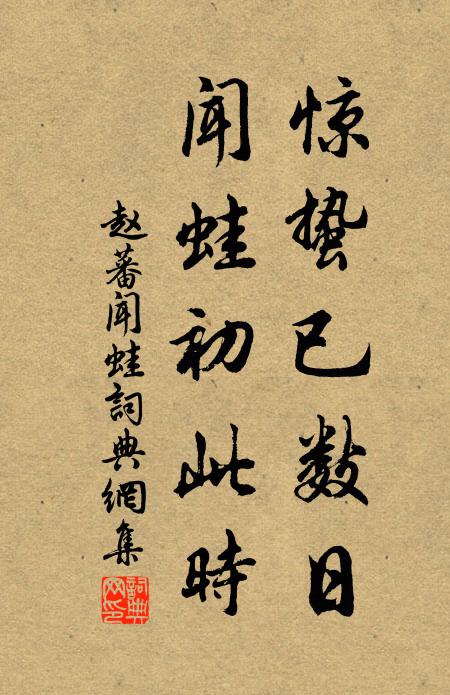 惊蛰已数日
闻蛙初此時
赵蕃闻蛙詞典網集
詞典网印